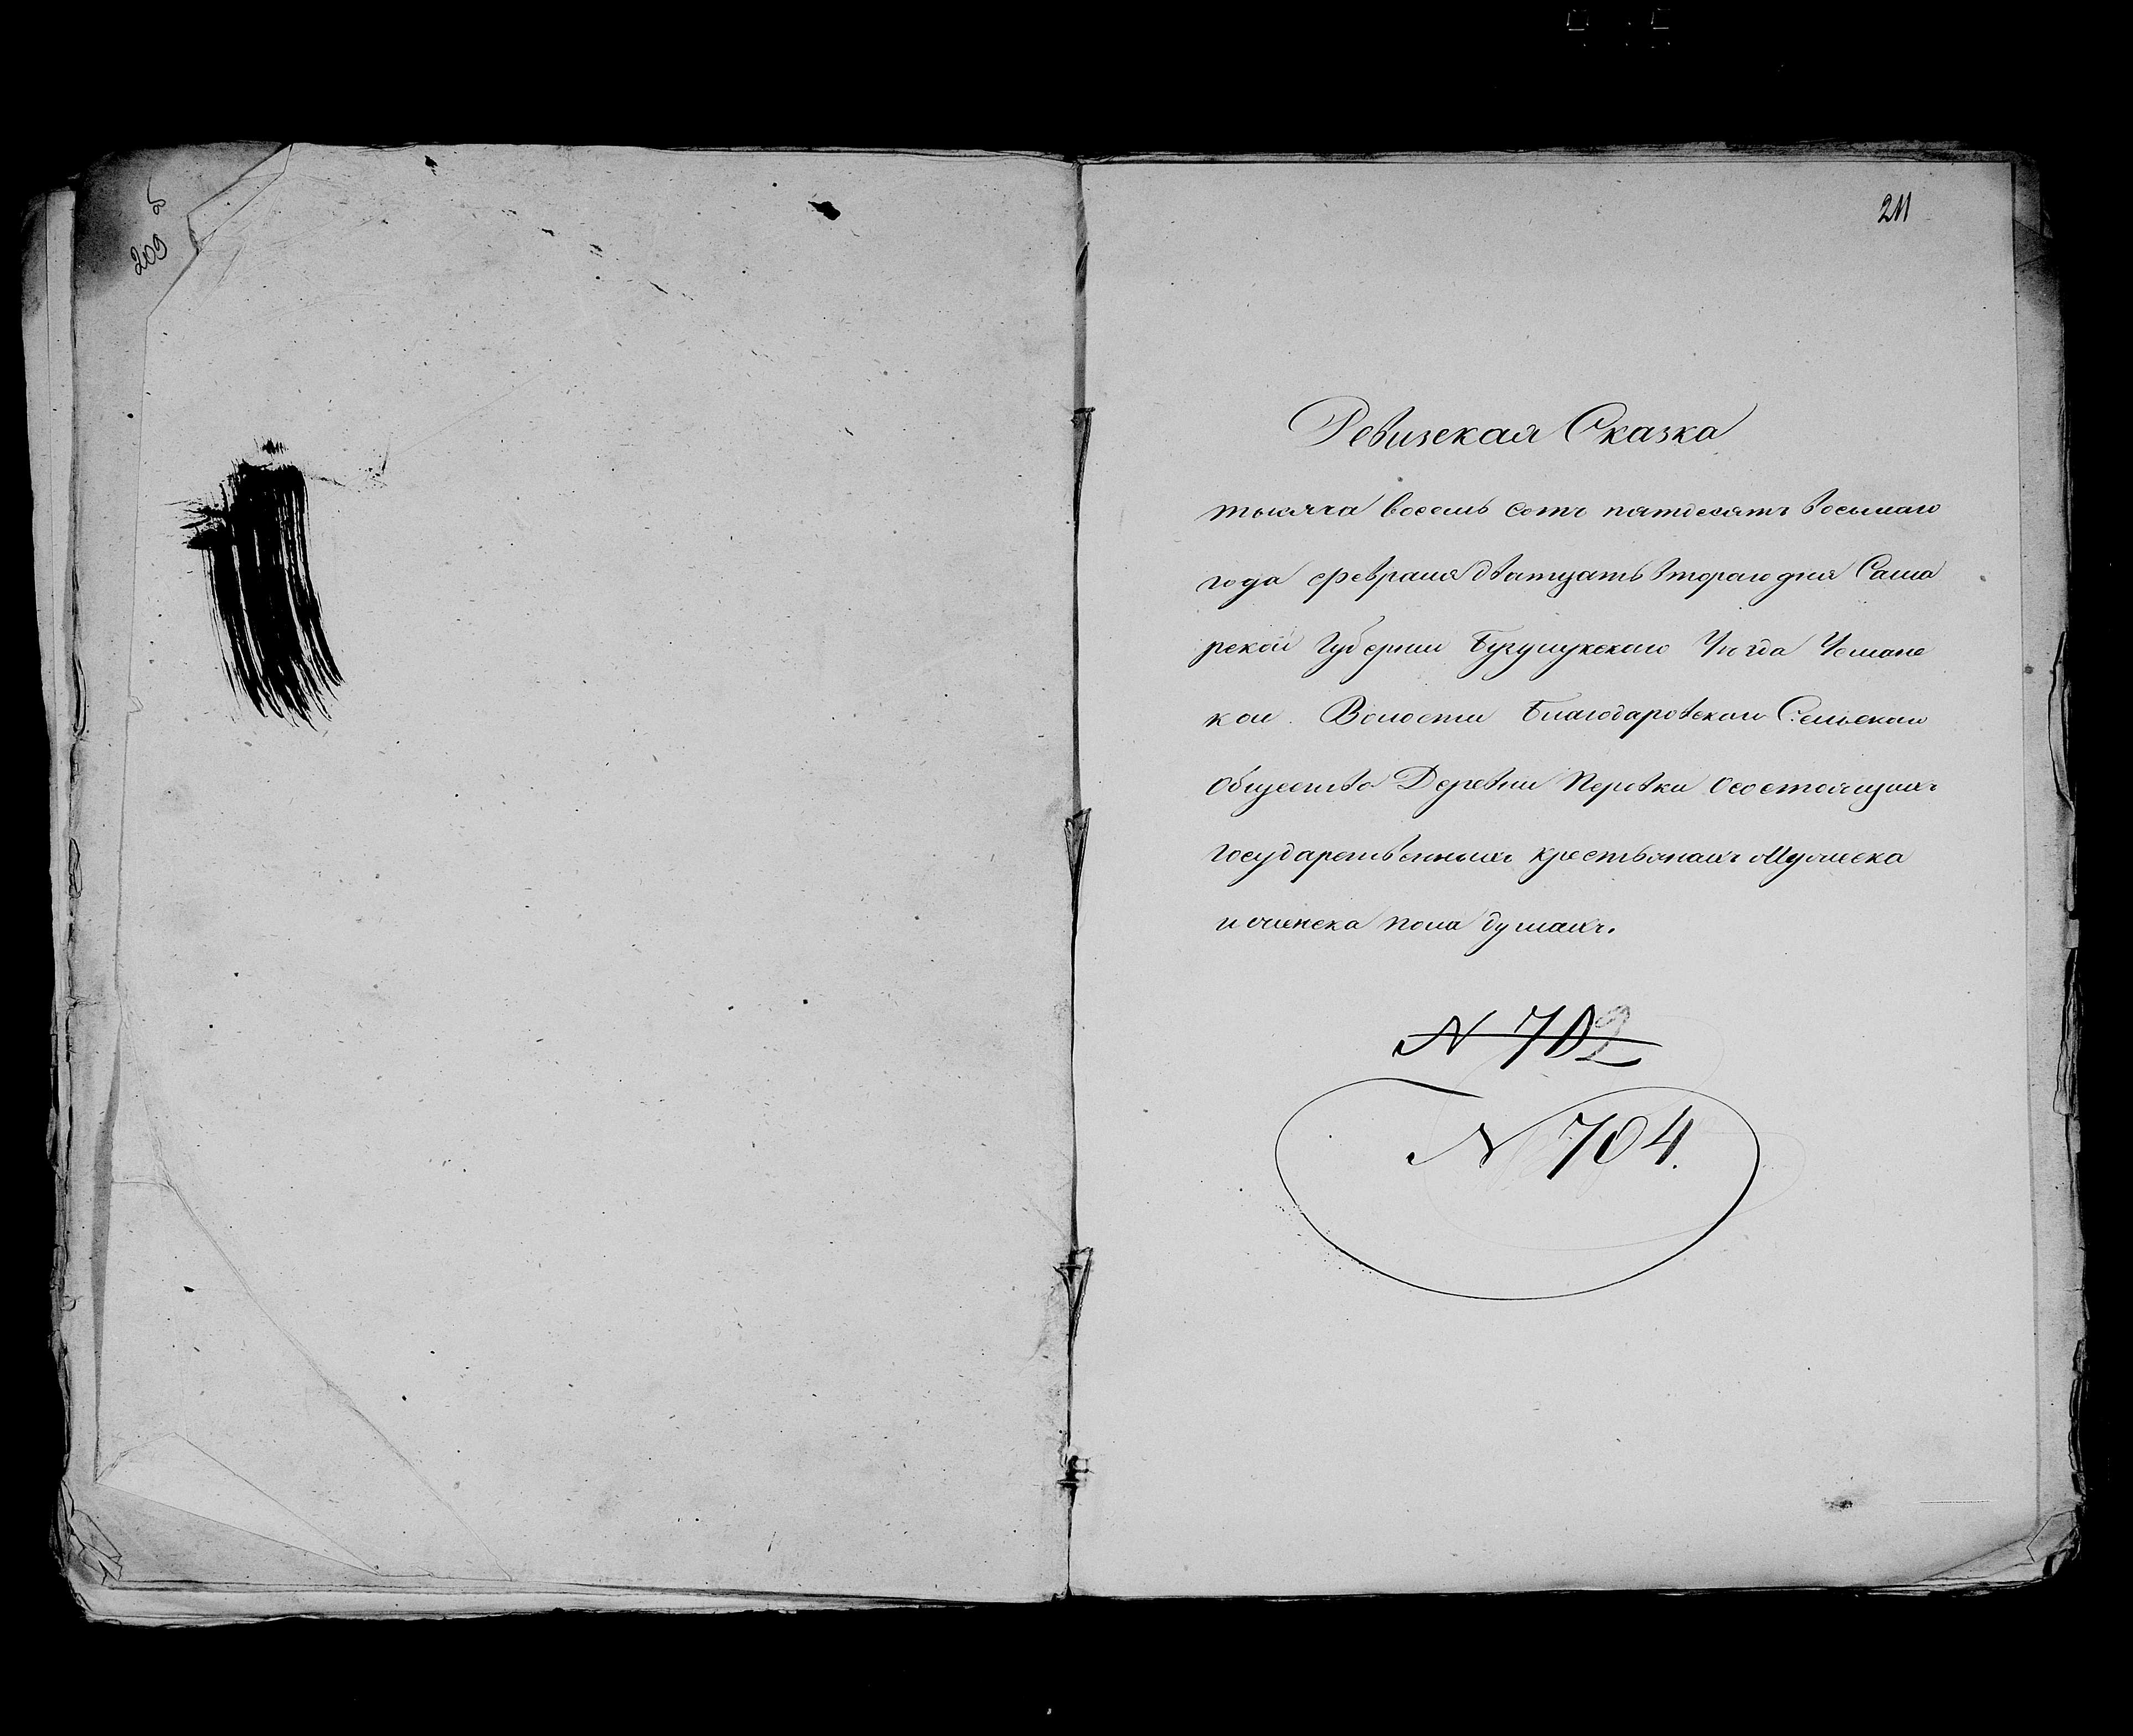 209
211
Ревизская Сказка
тысяча восемь сотъ пятдесятъ восьмаго
года февраля дватцать втораго дня Сама
рской Губерніи Бугузукскаго Уѣзда
кои Волости Благодаровскаго Сельскаго
общества Деревни Перовки осостоящихъ
государственныхъ крестьянахъ Мужеска
и женска пола душахъ.
N 702
N 704.